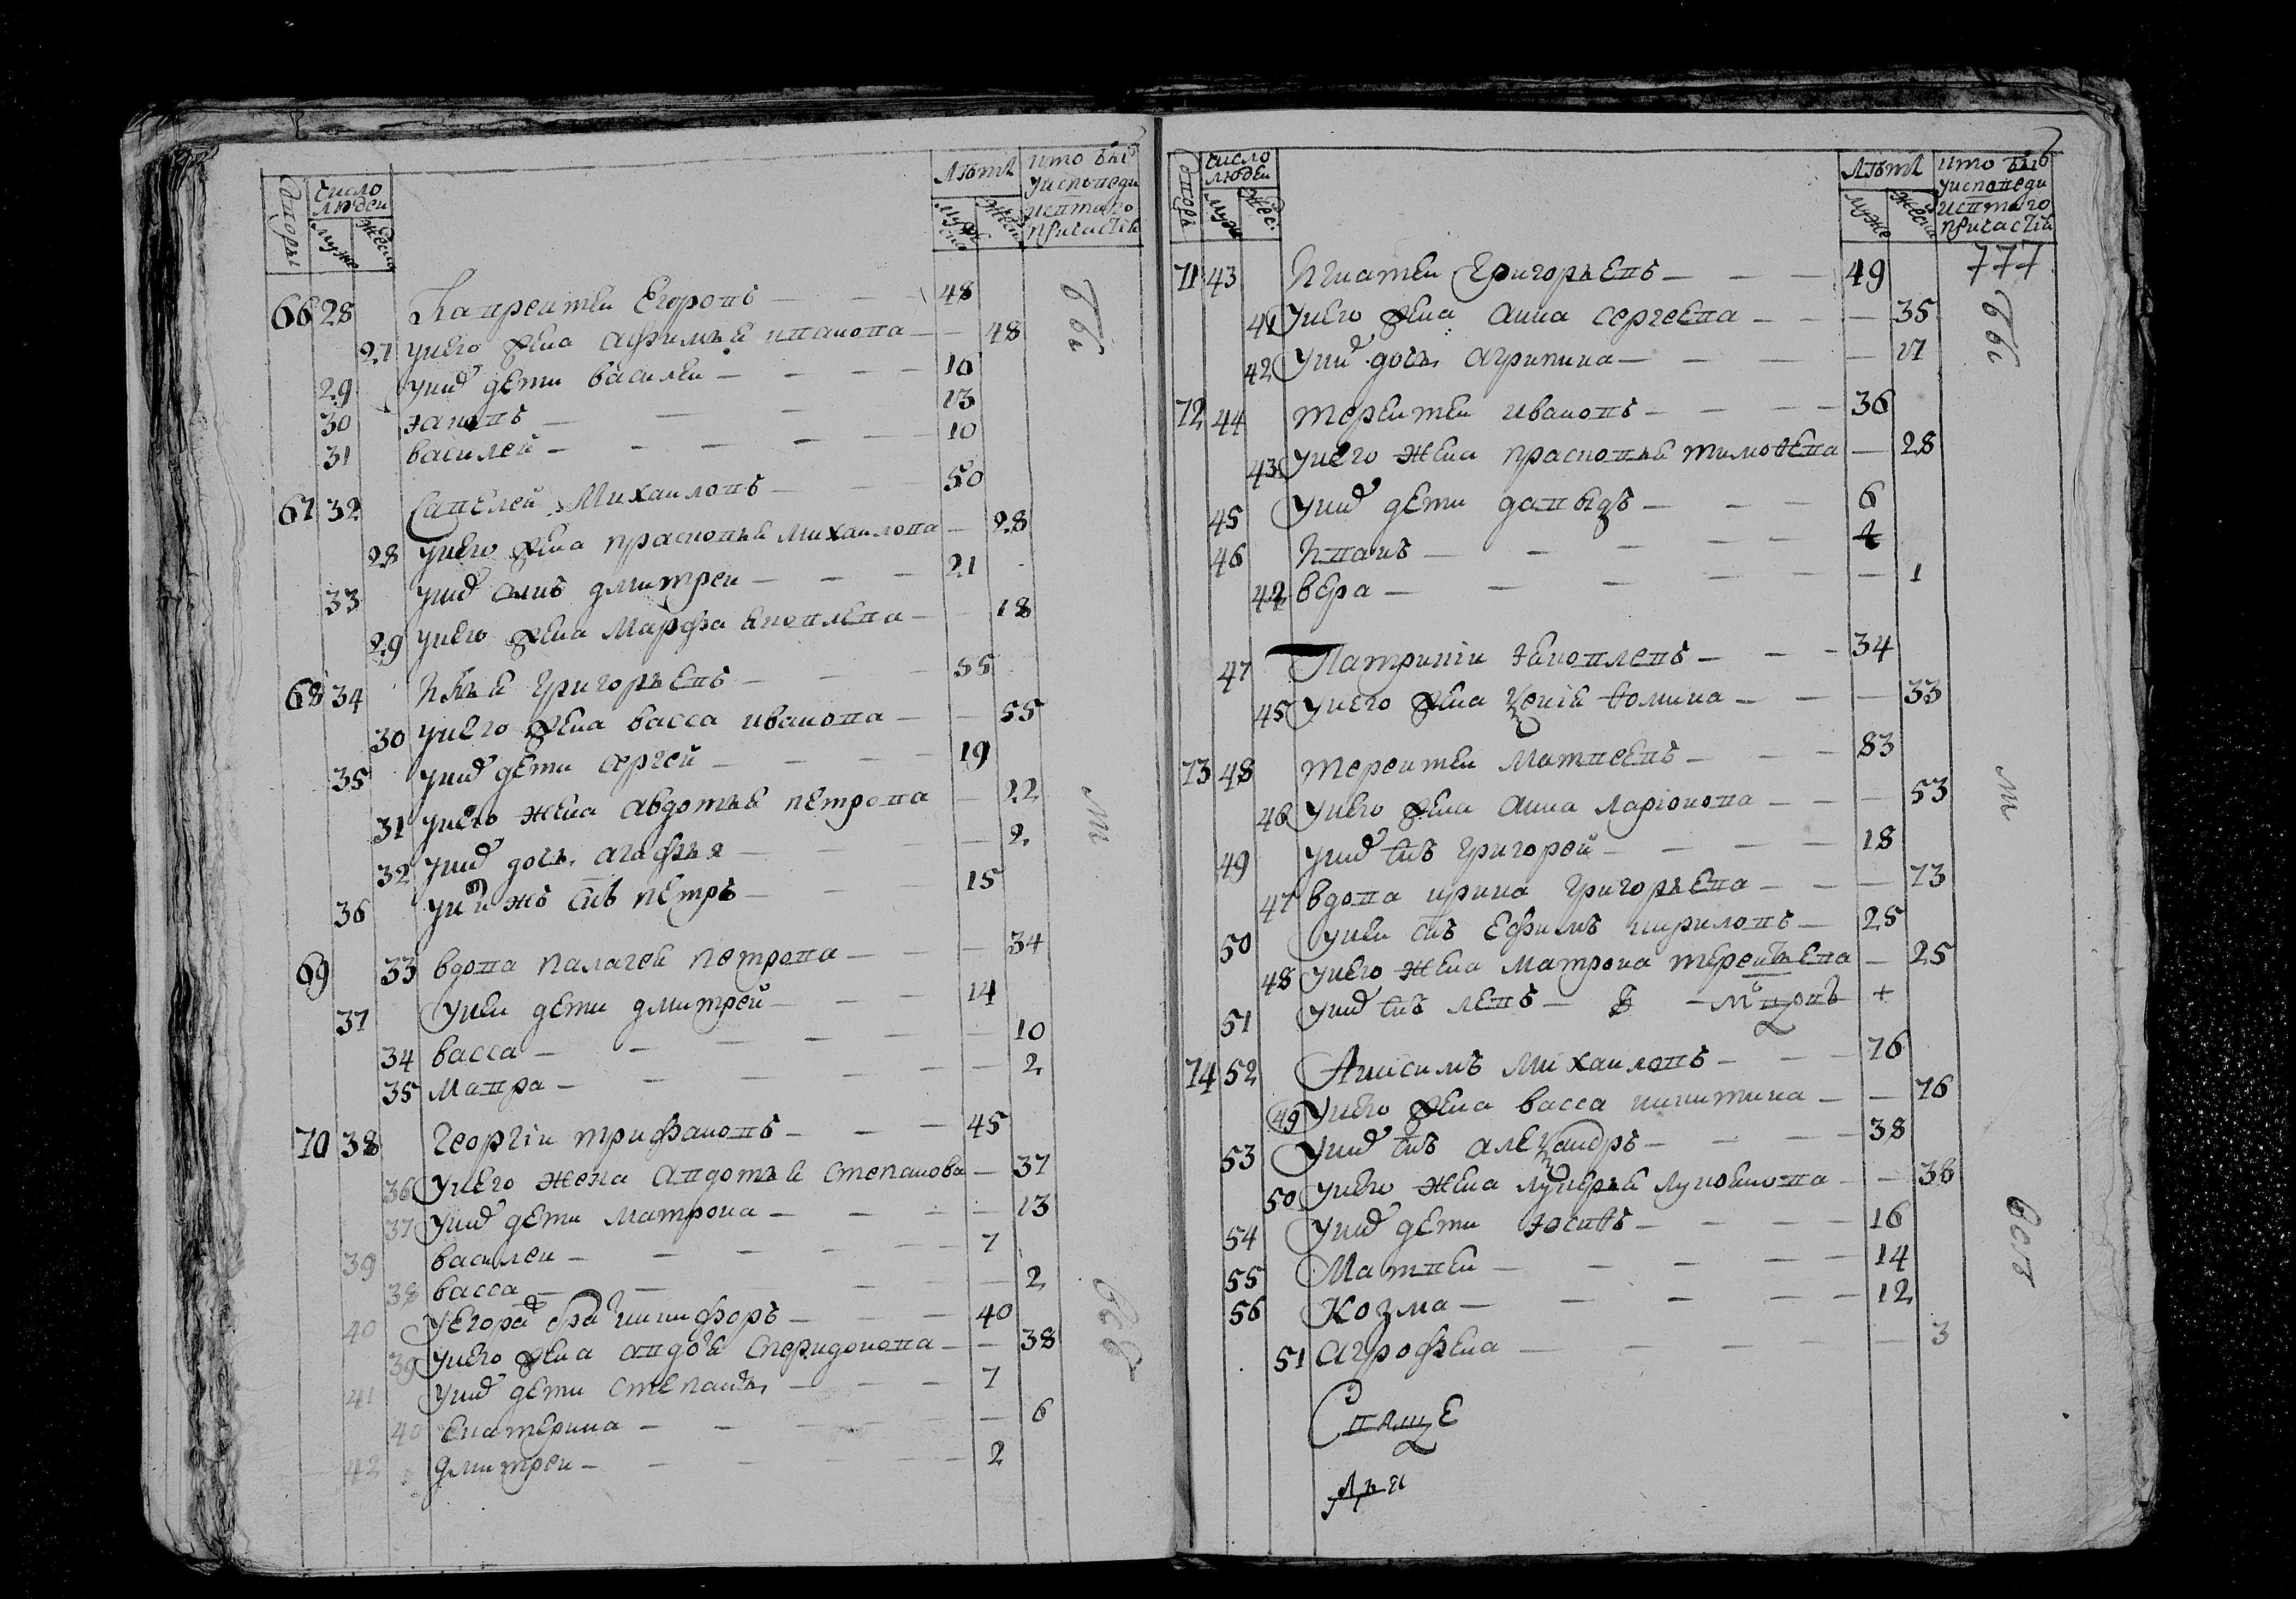 Дворы
число людей
муж
женск
Лѣта
муже
ско
женск
кто былъ
у исповеди
и святаго
причастія
66 28 Лаврентеи Егоровъ — — — 48
27 у него жена Афимья иванова — — 48
29 у них дети василеи — — — — 16
30 яковъ — — — 13
31 василей — — — — — 10
67 32 Савелей Михаиловъ — — 50
28 у него жена прасковья михаилова — 28
33 у них сынъ дмитреи — — — 21
29 у него жена Марфа яковлева — — 18
68 34 илья григорьевъ — — — 55
30 у него жена васса иванова — — 55
35 у них дети сергей — — — — 19
31 у него жена авдотья петрова — 22
32 у них дочь агафья — — — 2
36 у них жъ снъ петръ — — 15
69 33 вдова палагея петрова — — — 34
37 у неи дети дмитрей — — — 14
34 васса — — — — — — 10
35 мавра — — — — — — 2
70 38 георгіи трифановъ — — — 45
36 у него жена авдотья степанова — 37
37 у них дети матрона — — — — 13
39 василеи — — — — — 7
38 васса — — — — — 2
40 у егора бра никифоръ — — — 40
39 у него жена авдотя спиридонова — — 38
41 у них дети степанъ — — — 7
40 екатерина — — — — — — 6
42 дмитреи — — — — — 2
бы
ли
все
Дворы
число людей
муже
жес.
Лѣта
муже
женск
кто былъ
у исповеди
и святаго
причастія
777
71 43 игнатеи григорьевъ — — — 49
41 у него жена анна сергеева — — — 35
42 у них дочь агрипина — — — — 17
72 44 терентеи ивановъ — — — — 36
43 у него жена прасковья тимоѳева — 28
45 у них дети давыдъ — — — 6
46 иванъ — — — — — 4
42 вера — — — — — 1
47 Патрикіи яковлевъ — — — 34
45 у него жена ксенія ѳомина — — — 33
73 48 терентеи матвеевъ — — — 83
46 у него жена анна ларіонова — — — 53
49 у них снъ григорей — — — — 18
47 вдова ирина григорьева — — — 73
50 у неи снъ ефимъ кириловъ — 25
48 у него жена матрона терентьева — 25
51 у них снъ левъ — 6 — мцовъ +
74 52 Анисимъ михаиловъ — — — 76
49 у него жена васса никитина — — 76
53 у них снъ александръ — — — — 38
50 у него жена лукерья лукоянова — — 38
54 у них дети іосиѳъ — — — — 16
55 Матвеи — — — — — 14
56 козма — — — — — 12
51 аграфена — — — — 3
Свяще
лья
бы
ли
все